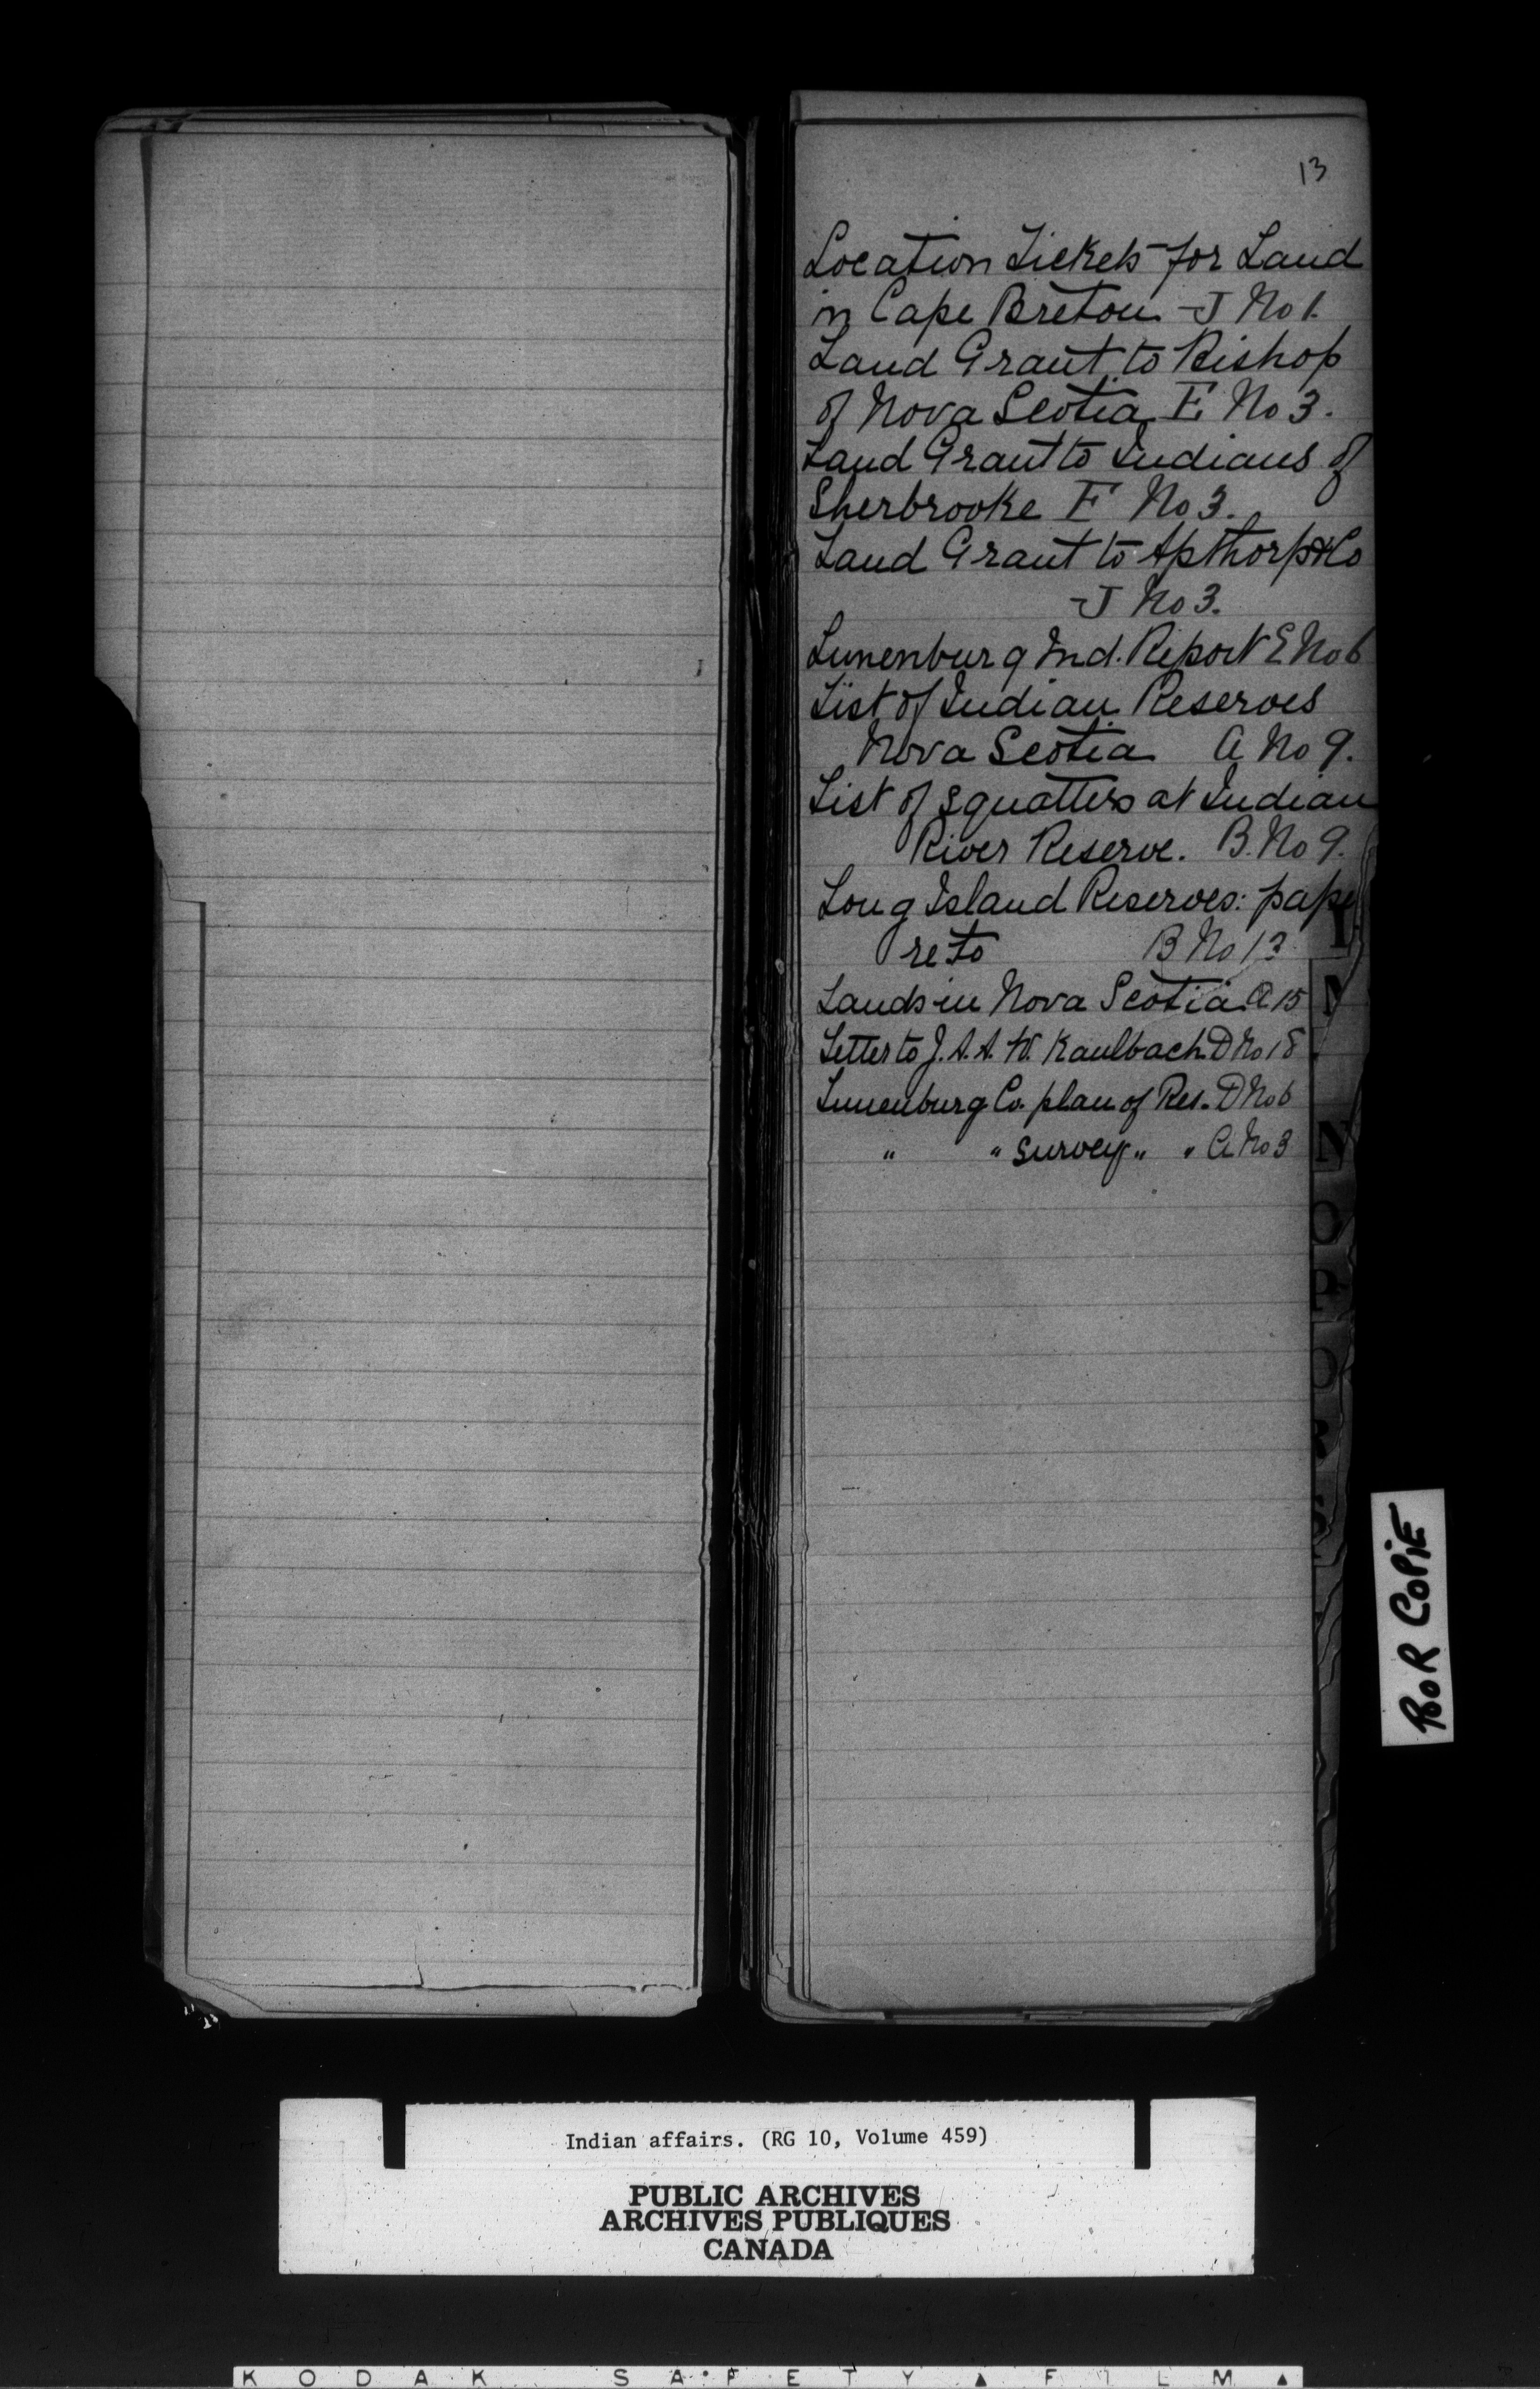 13
Location Tickets for Land
in Cape Breton J No 1.
Land Grant to Bishop
of Nova Scotia E No 3.
Land Grant to Indians of
Sherbrooke F No 3.
Land Grant to Apthorp & Co
J No 3.
Lunenburg Ind. Report E No 6
List of Indian Reserves
Nova Scotia A No 9.
List of squatters at Indian
River Reserve. B. No 9.
Long Island Reserves: pape
re to B No 13
Lands in Nova Scotia A 15
Letter to J. A. A. W. Kaulbach D No 18
Lunenburg Co. plan of Res. D No 6
" " survey " " A No 3
N
O
P
R
BOR COPIE
Indian affairs. (RG 10, Volume 459)
PUBLIC ARCHIVES
ARCHIVES PUBLIQUES
CANADA
KODAK SAFETY ▲ FILM ▲